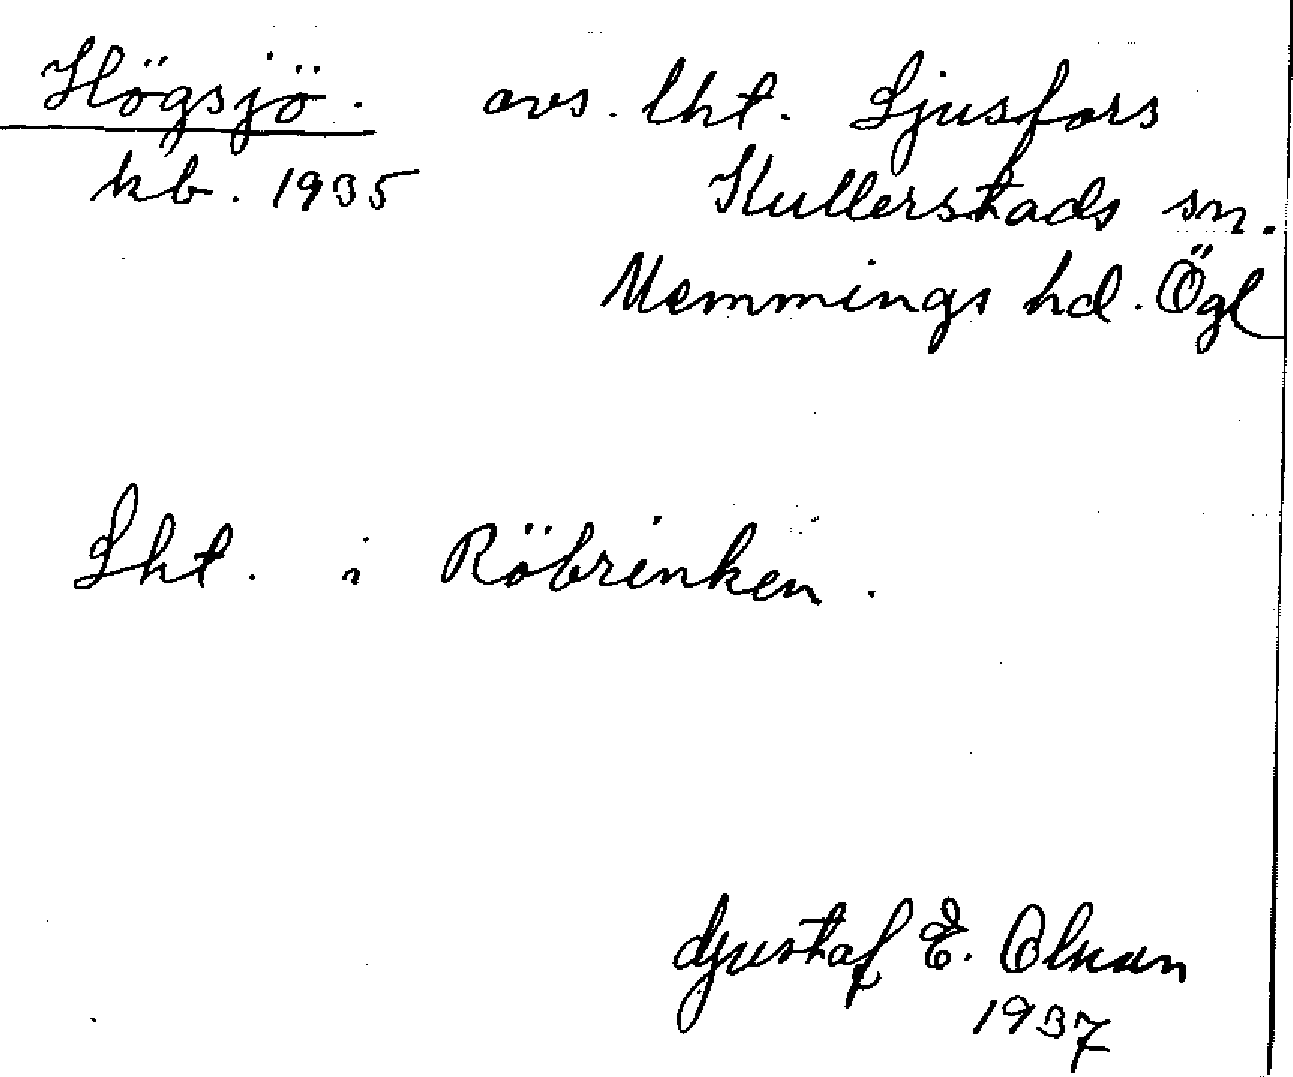 Högsjö. avs. lht. Ljusfors
kb. 1935 Kullerstads sn.
Memmings hd. Ögl
Lht. i Röbrinken.
Gustaf E. Olsson
1937